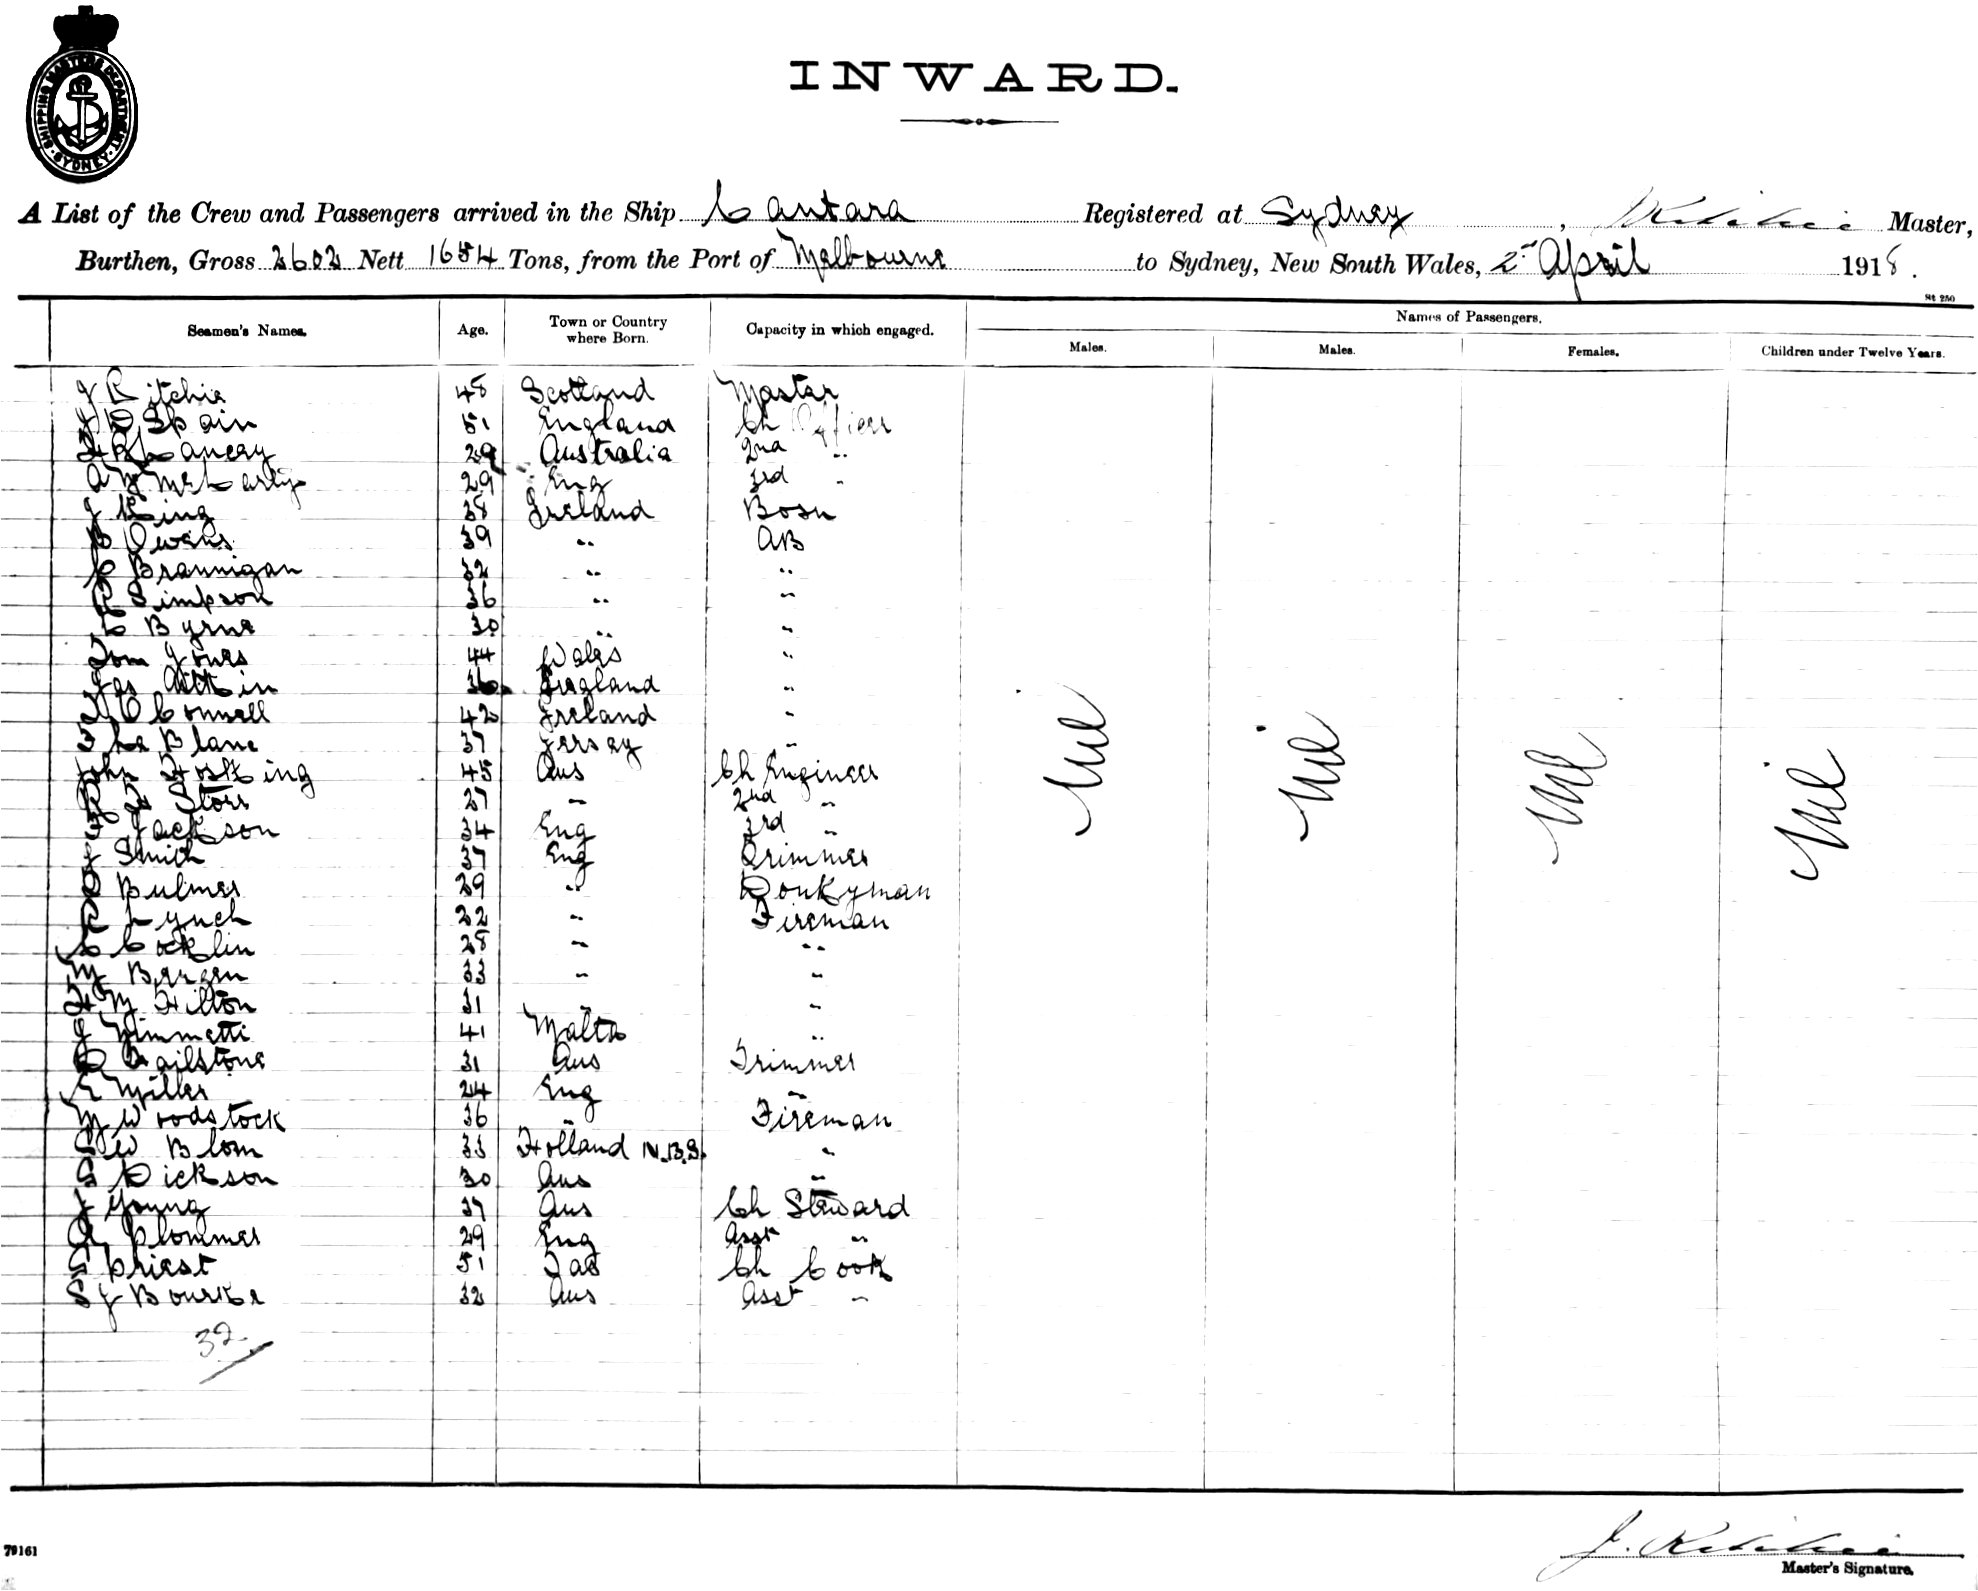 SHIPPING MASTERS DEPARTMENT
SYDNEY
INWARD.
A List of the Crew and Passengers arrived in the Ship Cantara Registered at Sydney, Ritchie Master,
Burthen, Gross 2602 Nett 1654 Tons, from the Port of Melbourne to Sydney, New South Wales, 2nd April 1918.
St 250
Seamen's Names. Age. Town or Country where Born. Capacity in which engaged. Names of Passengers.
Males. Males. Females. Children under Twelve Years.
J Ritchie 48 Scotland Master
J D Spain 51 England Ch Officer
Lancey 29 Australia 2nd "
A McCarty 29 Eng 3rd "
J King 38 Ireland Bosn
B Owens 39 " AB
C Brannigan 32 " "
R Simpson 36 " "
C Byrne 30 " "
Tom Jones 44 Wales "
Jas Aitkin 36 England "
T O Connell 42 Ireland "
Le Blanc 37 Jersey "
John Hosking 45 Aus Ch Engineer
Storr 27 " 2nd "
Jackson 34 Eng 3rd "
J Smith 37 Eng Trimmer
D Bulmer 29 " Donkyman
R Lynch 22 " Fireman
C Cocklin 28 " "
M Bergen 33 " "
H M Hilton 31 " "
J Zimmetti 41 Malta "
D Gailstone 31 Aus Trimmer
E Miller 24 Eng "
M Woodstock 36 " Fireman
S W Blom 33 Holland N.B.S. "
G Dickson 30 Aus "
J Young 37 Aus Ch Steward
A Plommer 29 Eng Asst "
G Priest 51 Tas Ch Cook
S J Bourke 32 Aus Asst "
Nil Nil Nil Nil
32
J. Ritchie
79161
Master's Signature.